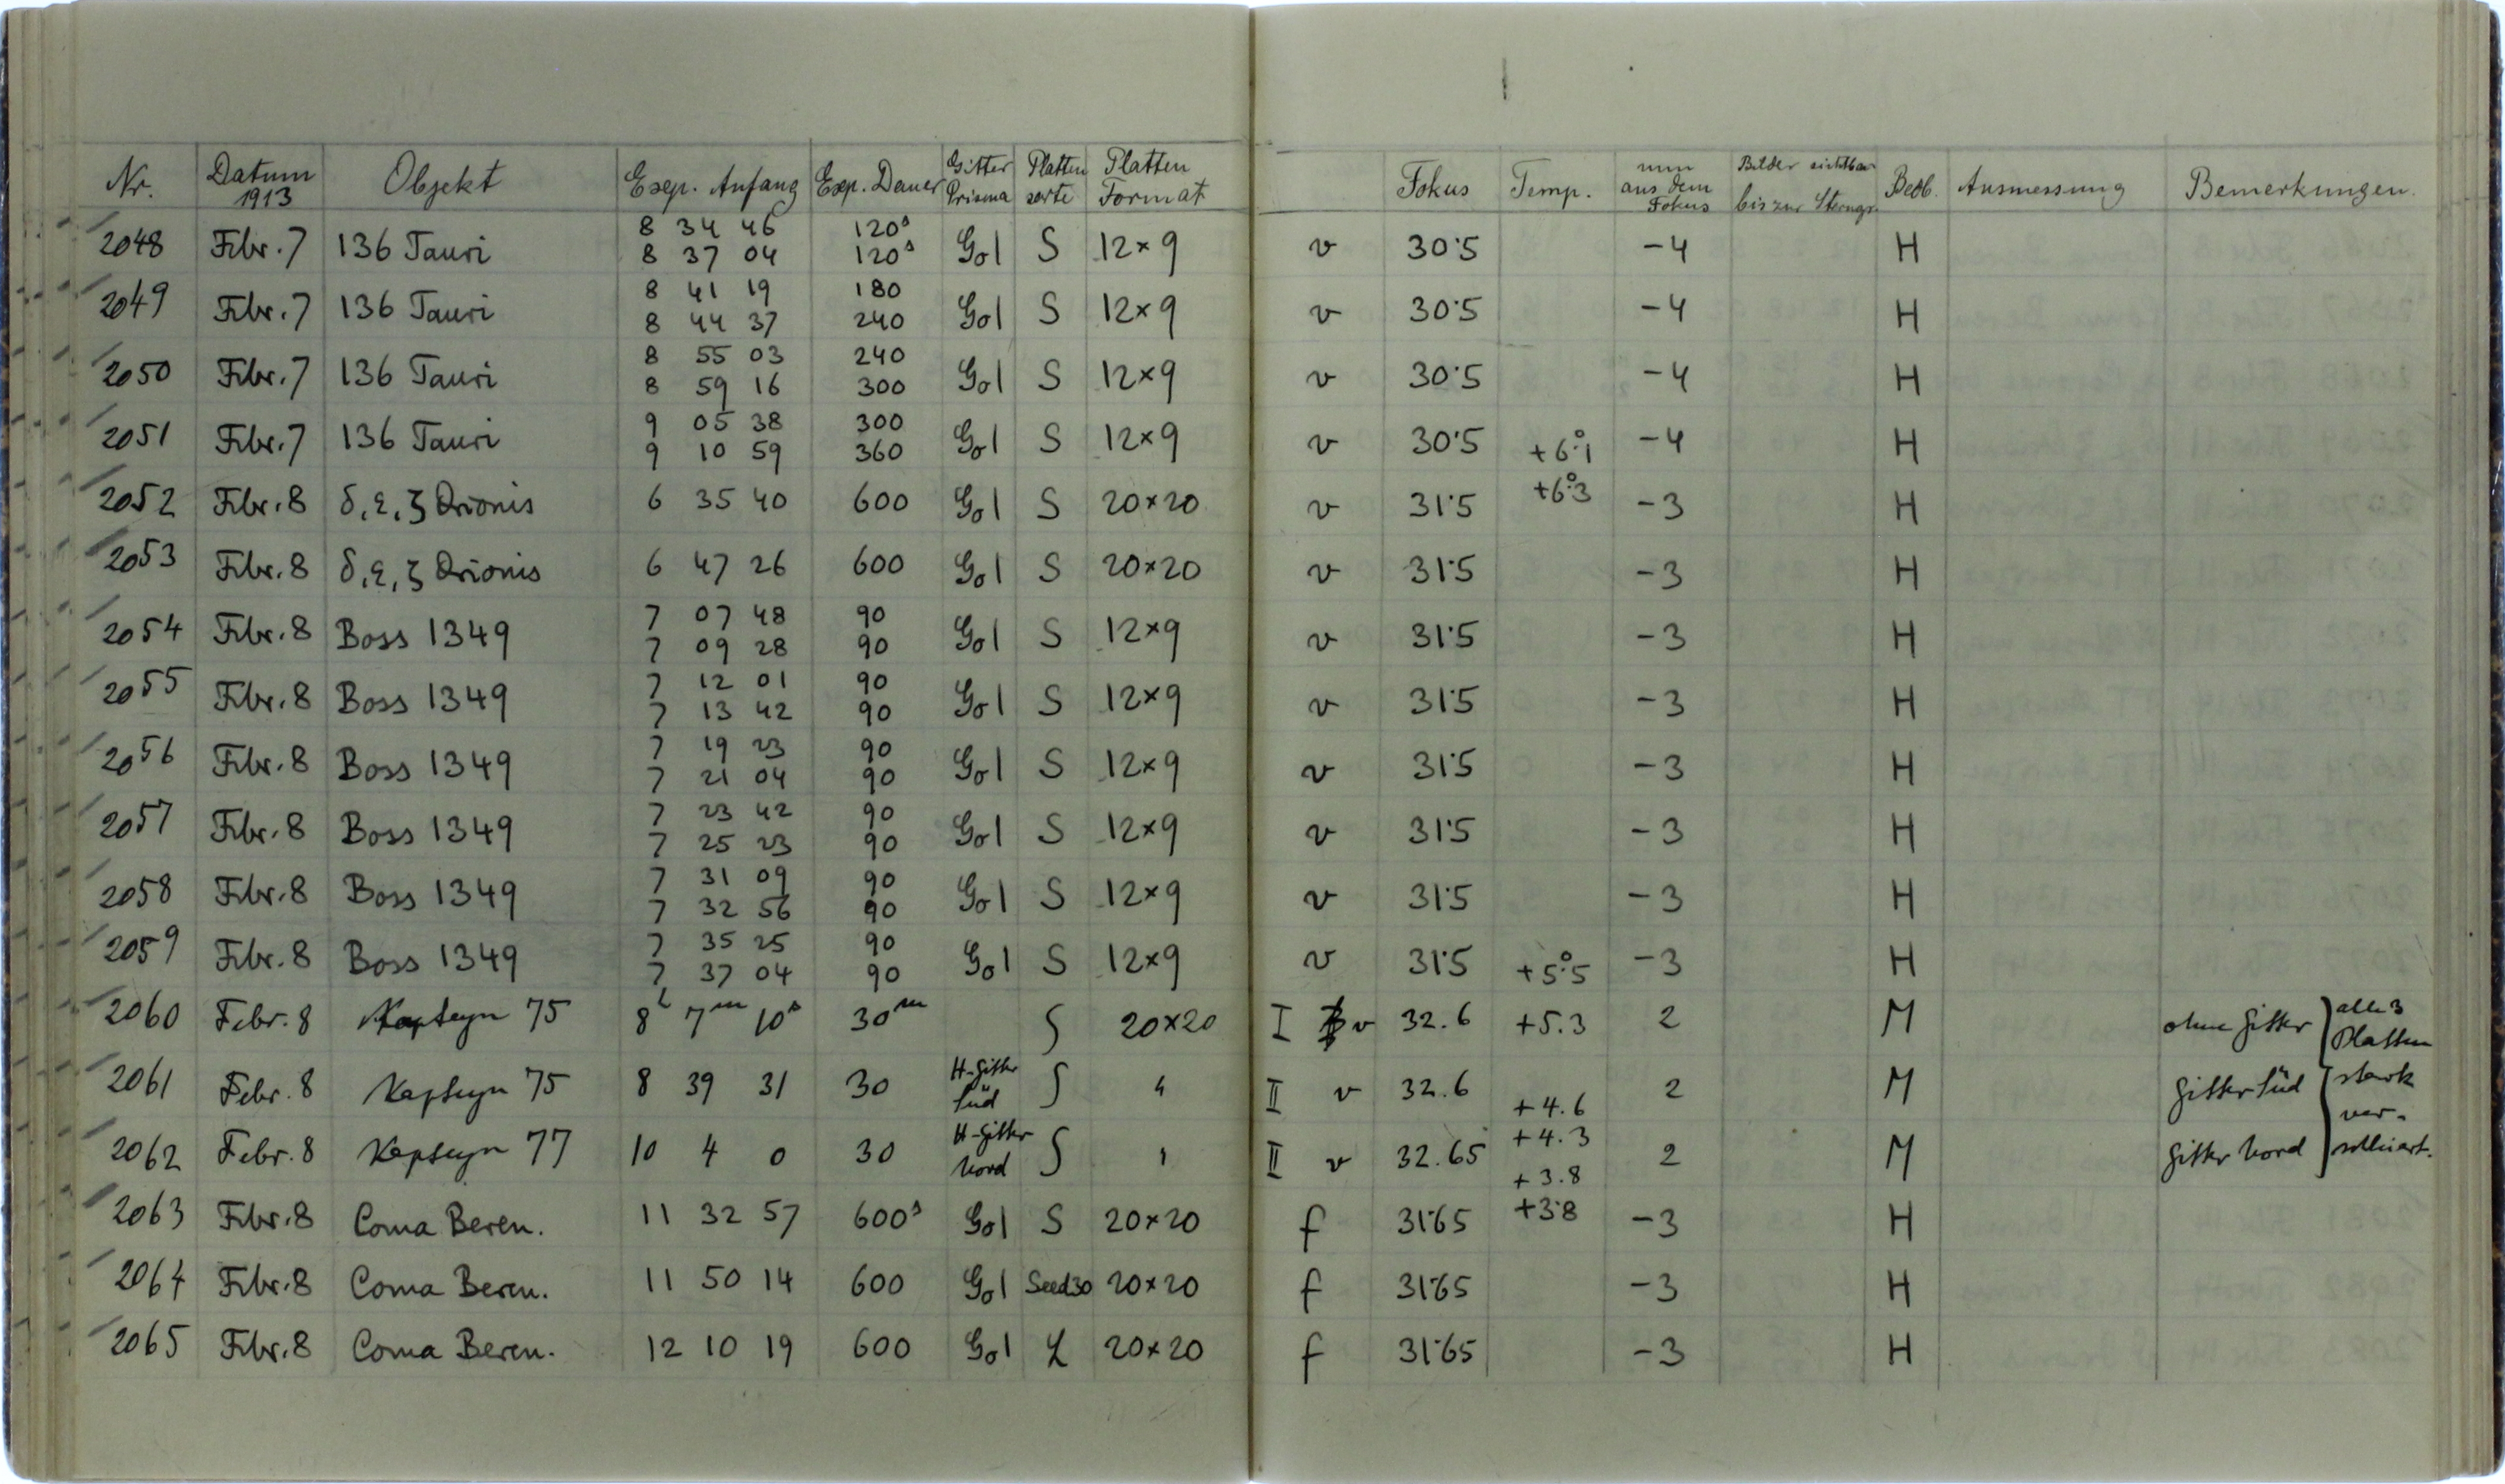 Nr. Datum 1913 Objekt Exp. Anfang Exp. Dauer Gitter Prisma Platten sorte Platten Format Fokus Temp. mm aus dem Fokus Bilder sichtbar bis zur Sterngr. Beob. Ausmessung Bemerkungen.
2048 Febr. 7 136 Tauri 8 34 46 120s Go1 S 12×9 v 30.5 -4 H
8 37 04 120s
2049 Febr. 7 136 Tauri 8 41 19 180 Go1 S 12×9 v 30.5 -4 H
8 44 37 240
2050 Febr. 7 136 Tauri 8 55 03 240 Go1 S 12×9 v 30.5 -4 H
8 59 16 300
2051 Febr. 7 136 Tauri 9 05 38 300 Go1 S 12×9 v 30.5 +6.°1 -4 H
9 10 59 360
2052 Febr. 8 δ, ε, ζ Orionis 6 35 40 600 Go1 S 20×20 v 31.5 +6.°3 -3 H
2053 Febr. 8 δ, ε, ζ Orionis 6 47 26 600 Go1 S 20×20 v 31.5 -3 H
2054 Febr. 8 Boss 1349 7 07 48 90 Go1 S 12×9 v 31.5 -3 H
7 09 28 90
2055 Febr. 8 Boss 1349 7 12 01 90 Go1 S 12×9 v 31.5 -3 H
7 13 42 90
2056 Febr. 8 Boss 1349 7 19 23 90 Go1 S 12×9 v 31.5 -3 H
7 21 04 90
2057 Febr. 8 Boss 1349 7 23 42 90 Go1 S 12×9 v 31.5 -3 H
7 25 23 90
2058 Febr. 8 Boss 1349 7 31 09 90 Go1 S 12×9 v 31.5 -3 H
7 32 56 90
2059 Febr. 8 Boss 1349 7 35 25 90 Go1 S 12×9 v 31.5 +5.°5 -3 H
7 37 04 90
2060 Febr. 8 Kapteyn 75 8h 7m 10s 30m S 20×20 I v 32.6 +5.3 2 M ohne Gitter alle 3 Platten
2061 Febr. 8 Kapteyn 75 8 39 31 30 H-Gitter Süd S " II v 32.6 +4.6 2 M Gitter Süd stark ver-
2062 Febr. 8 Kapteyn 77 10 4 0 30 H-Gitter Nord S " II v 32.65 +4.3 +3.8 2 M Gitter Nord schleiert.
2063 Febr. 8 Coma Beren. 11 32 57 600s Go1 S 20×20 f 31.65 +3.8 -3 H
2064 Febr. 8 Coma Beren. 11 50 14 600 Go1 Seed 30 20×20 f 31.65 -3 H
2065 Febr. 8 Coma Beren. 12 10 19 600 Go1 L 20×20 f 31.65 -3 H